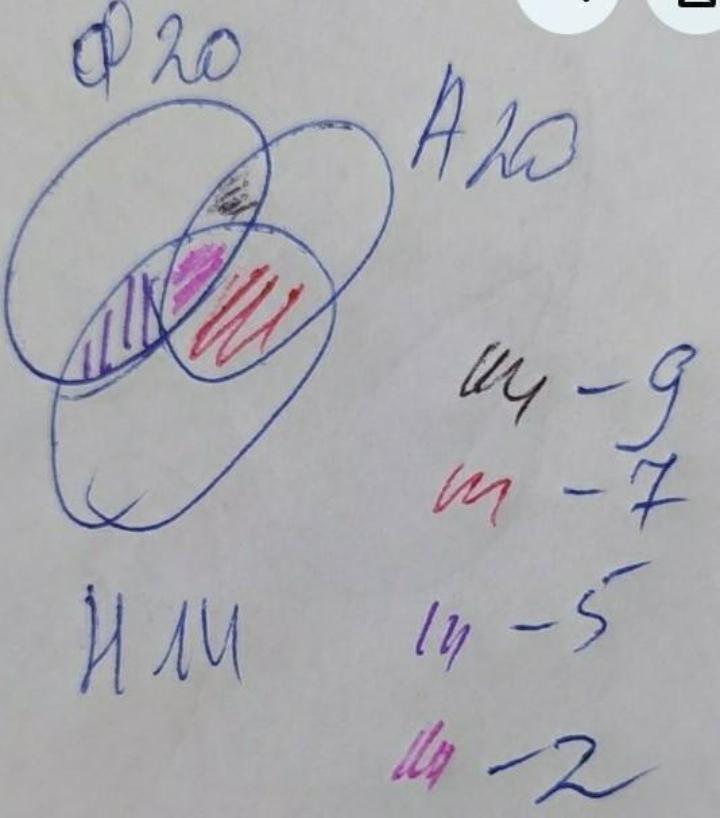 Ф 20
A 20
H 14
- 9
- 7
- 5
- 2